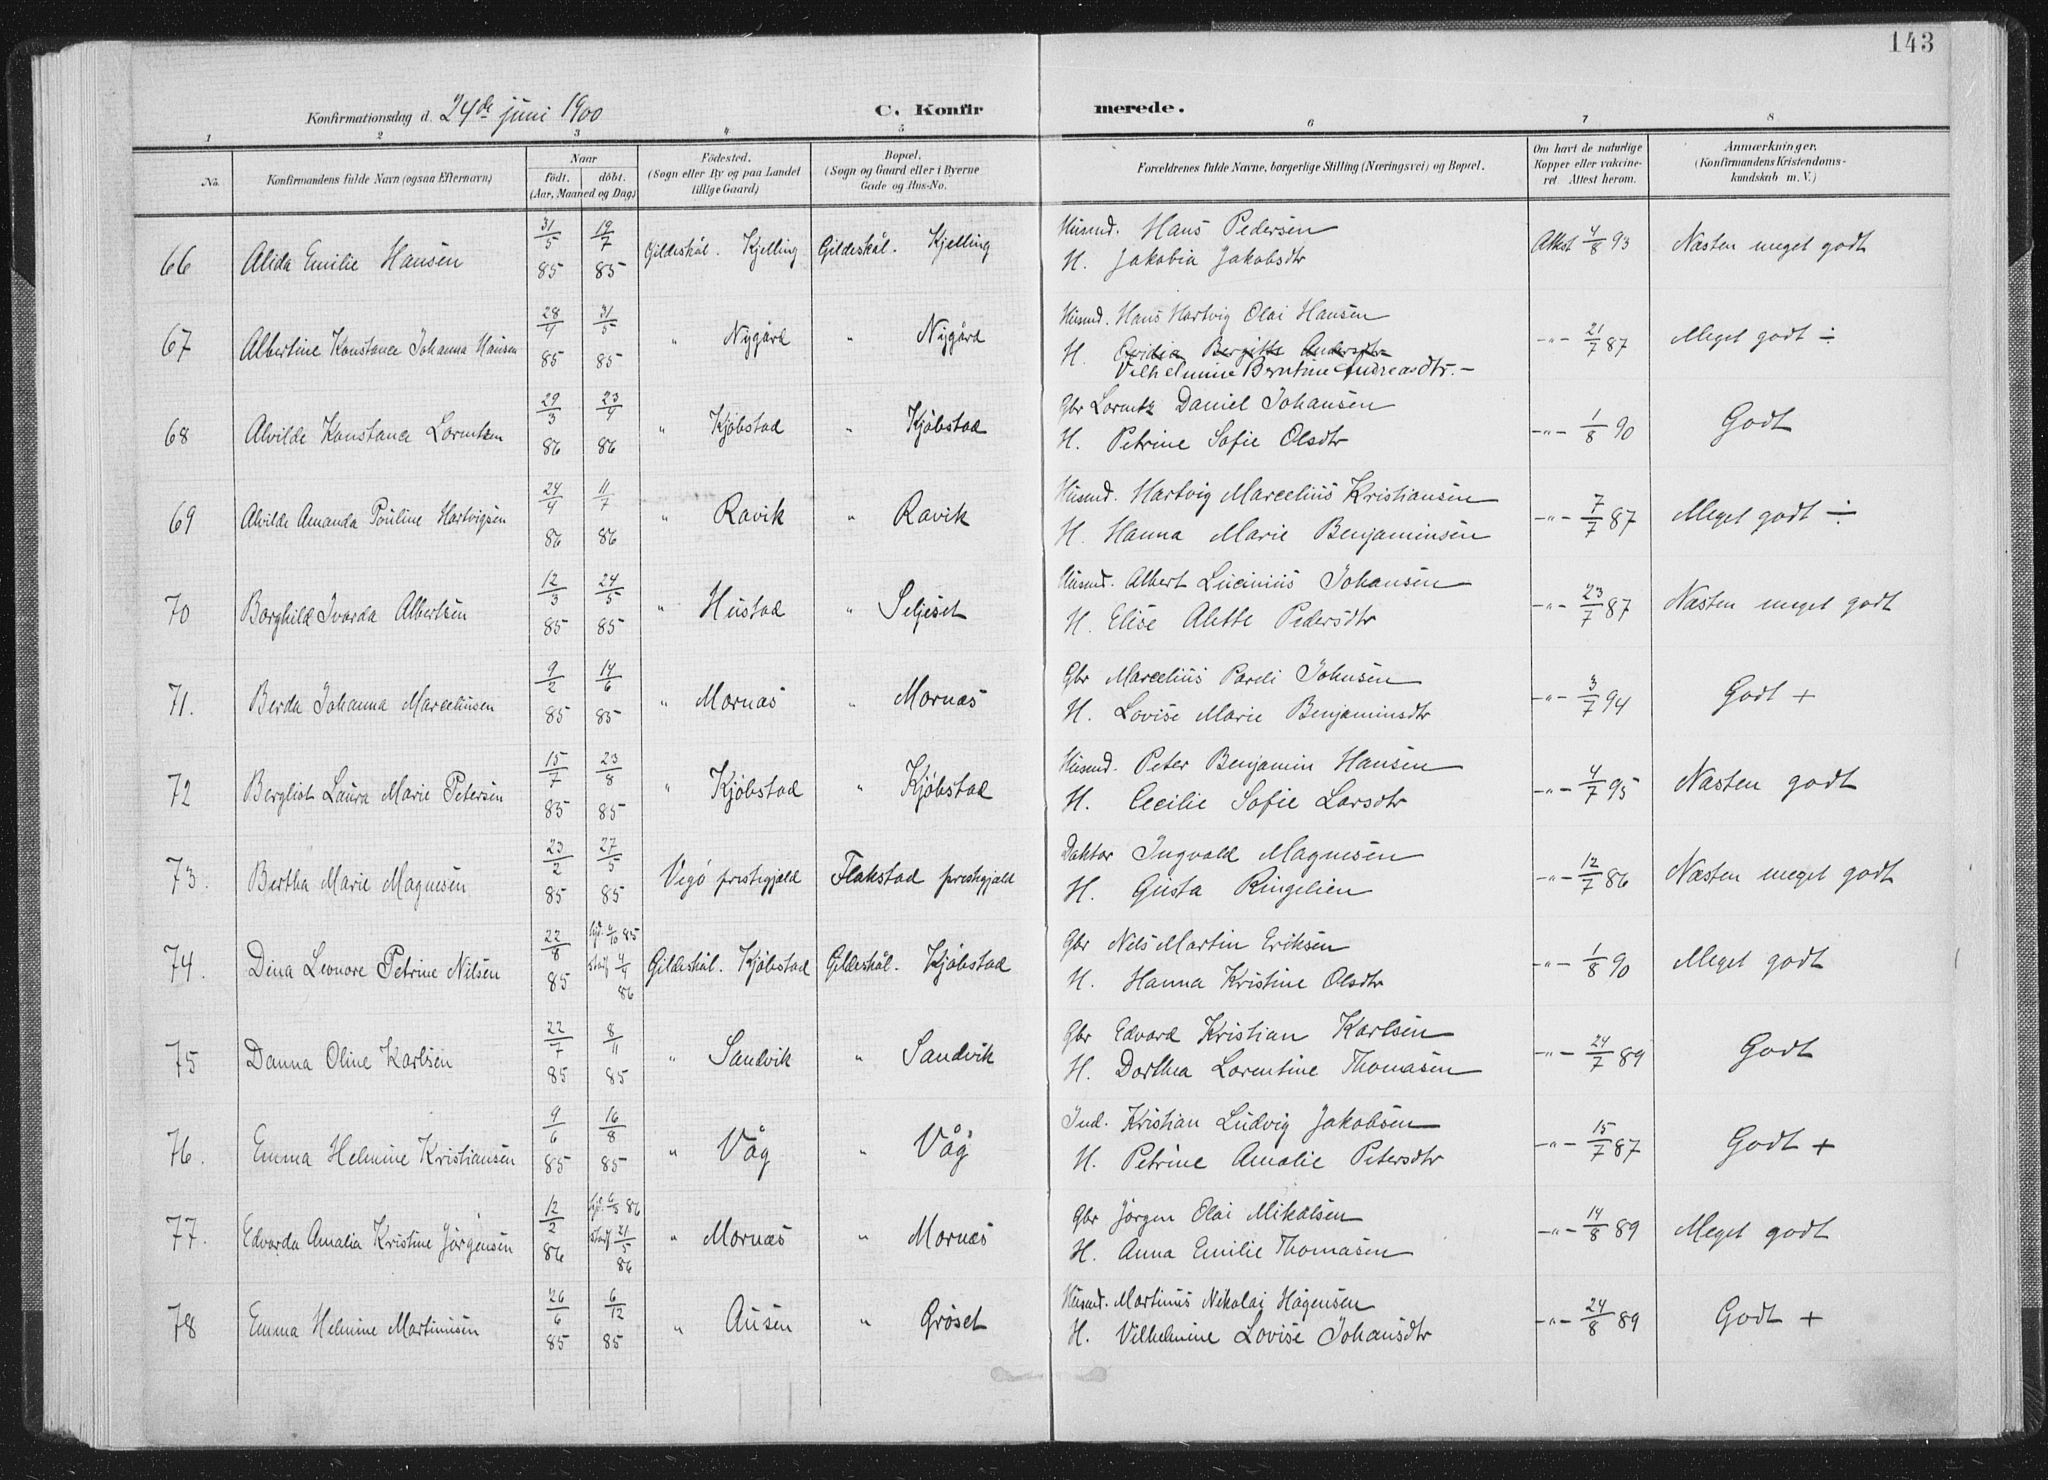 143
Konfirmationsdag d. 24de juni 1900
C. Konfirmerede.
1 2 3 4 5 6 7 8
No.
Konfirmandens fulde Navn (ogsaa Efternavn)
Naar
födt. döbt.
(Aar, Maaned og Dag)
Födested.
(Sogn eller By og paa Landet
tillige Gaard)
Bopæl.
(Sogn og Gaard eller i Byerne
Gade og Hus-No.
Forældrenes fulde Navne, borgerlige Stilling (Næringsvei) og Bopæl.
Om havt de naturlige
Kopper eller vakcine-
ret. Attest herom.
Anmærkninger.
(Konfirmandens Kristendoms-
kundskab m. V.)
66 Alida Emilie Hansen 31/5 85 19/7 85 Gildeskål. Kjelling Gildeskål. Kjelling
Husmd. Hans Pedersen
H. Jakobia Jakobsdtr
Attest 4/8 93 Næsten meget godt
67 Albertine Konstance Johanna Hansen 28/4 85 31/5 85 " Nygård " Nygård
Husmd. Hans Hartvig Olai Hansen
H. Bergitte Andersdtr
Vilhelmine Berntine Andreasdtr.-
-"- 21/7 87 Meget godt ÷
68 Alvilde Konstance Lorentzen 29/3 86 23/4 86 " Kjöbstad " Kjöbstad
Gbr Lorentz Daniel Johansen
H. Petrine Sofie Olsdtr
-"- 1/8 90 Godt
69 Alvilde Amanda Pouline Hartvigsen 24/4 86 11/7 86 " Ravik " Ravik
Husmd. Hartvig Marcelius Kristiansen
H. Hanna Marie Benjaminsen
-"- 7/7 87 Meget godt ÷
70 Borghild Ivarda Albertsen 12/3 85 24/5 85 " Hustad " Seljeset
Husmd. Albert Lucinius Johansen
H. Elise Alette Pedersdtr
-"- 23/7 87 Næsten meget godt
71. Berda Johanna Marceliusen 9/2 85 14/6 85 " Mornæs " Mornæs
Gbr Marcelius Pardi Johnsen
H. Lovise Marie Benjaminsdtr
-"- 3/7 94 Godt +
72 Bergliot Laura Marie Petersen 15/7 85 23/8 85 " Kjöbstad " Kjöbstad
Husmd. Peter Benjamin Hansen
H. Cecilie Sofie Larsdtr
-"- 4/7 95 Næsten godt
73. Bertha Marie Magnesen 23/2 85 27/5 85 Vegö prestegjæld Flakstad prestegjæld
Doktor Ingvald Magnesen
H. Gusta Ringelien
-"- 12/7 86 Næsten meget godt
74. Dina Leonore Petrine Nilsen 22/8 85 hjd. 6/10 85 stadf 4/4 86 Gildeskål. Kjöbstad Gildeskål. Kjöbstad
Gbr Nils Martin Eriksen
H. Hanna Kristine Olsdtr
-"- 1/8 90 Meget godt
75 Danna Oline Karlsen 22/7 85 8/11 85 " Sandvik " Sandvik
Gbr Edvard Kristian Karlsen
H. Dorthea Lorentine Thomasen
-"- 24/7 89 Godt
76. Emma Helmine Kristiansen 9/6 85 16/8 85 " Våg " Våg
Ind. Kristian Ludvig Jakobsen
H. Petrine Amalie Petersdtr
-"- 15/7 87 Godt +
77. Edvarda Amalia Kristine Jørgensen 12/2 86 hjd. 6/3 86 stadf 21/5 86 " Mornæs " Mornæs
Gbr Jørgen Olai Mikalsen
H. Anna Emilie Thomasen
-"- 14/8 89 Meget godt
78 Emma Helmine Martinusen 26/6 85 6/12 85 " Ausen " Gröset
Husmd. Martinus Nikolai Hågensen
H. Vilhelmine Lovise Johansdtr
-"- 24/8 89 Godt +